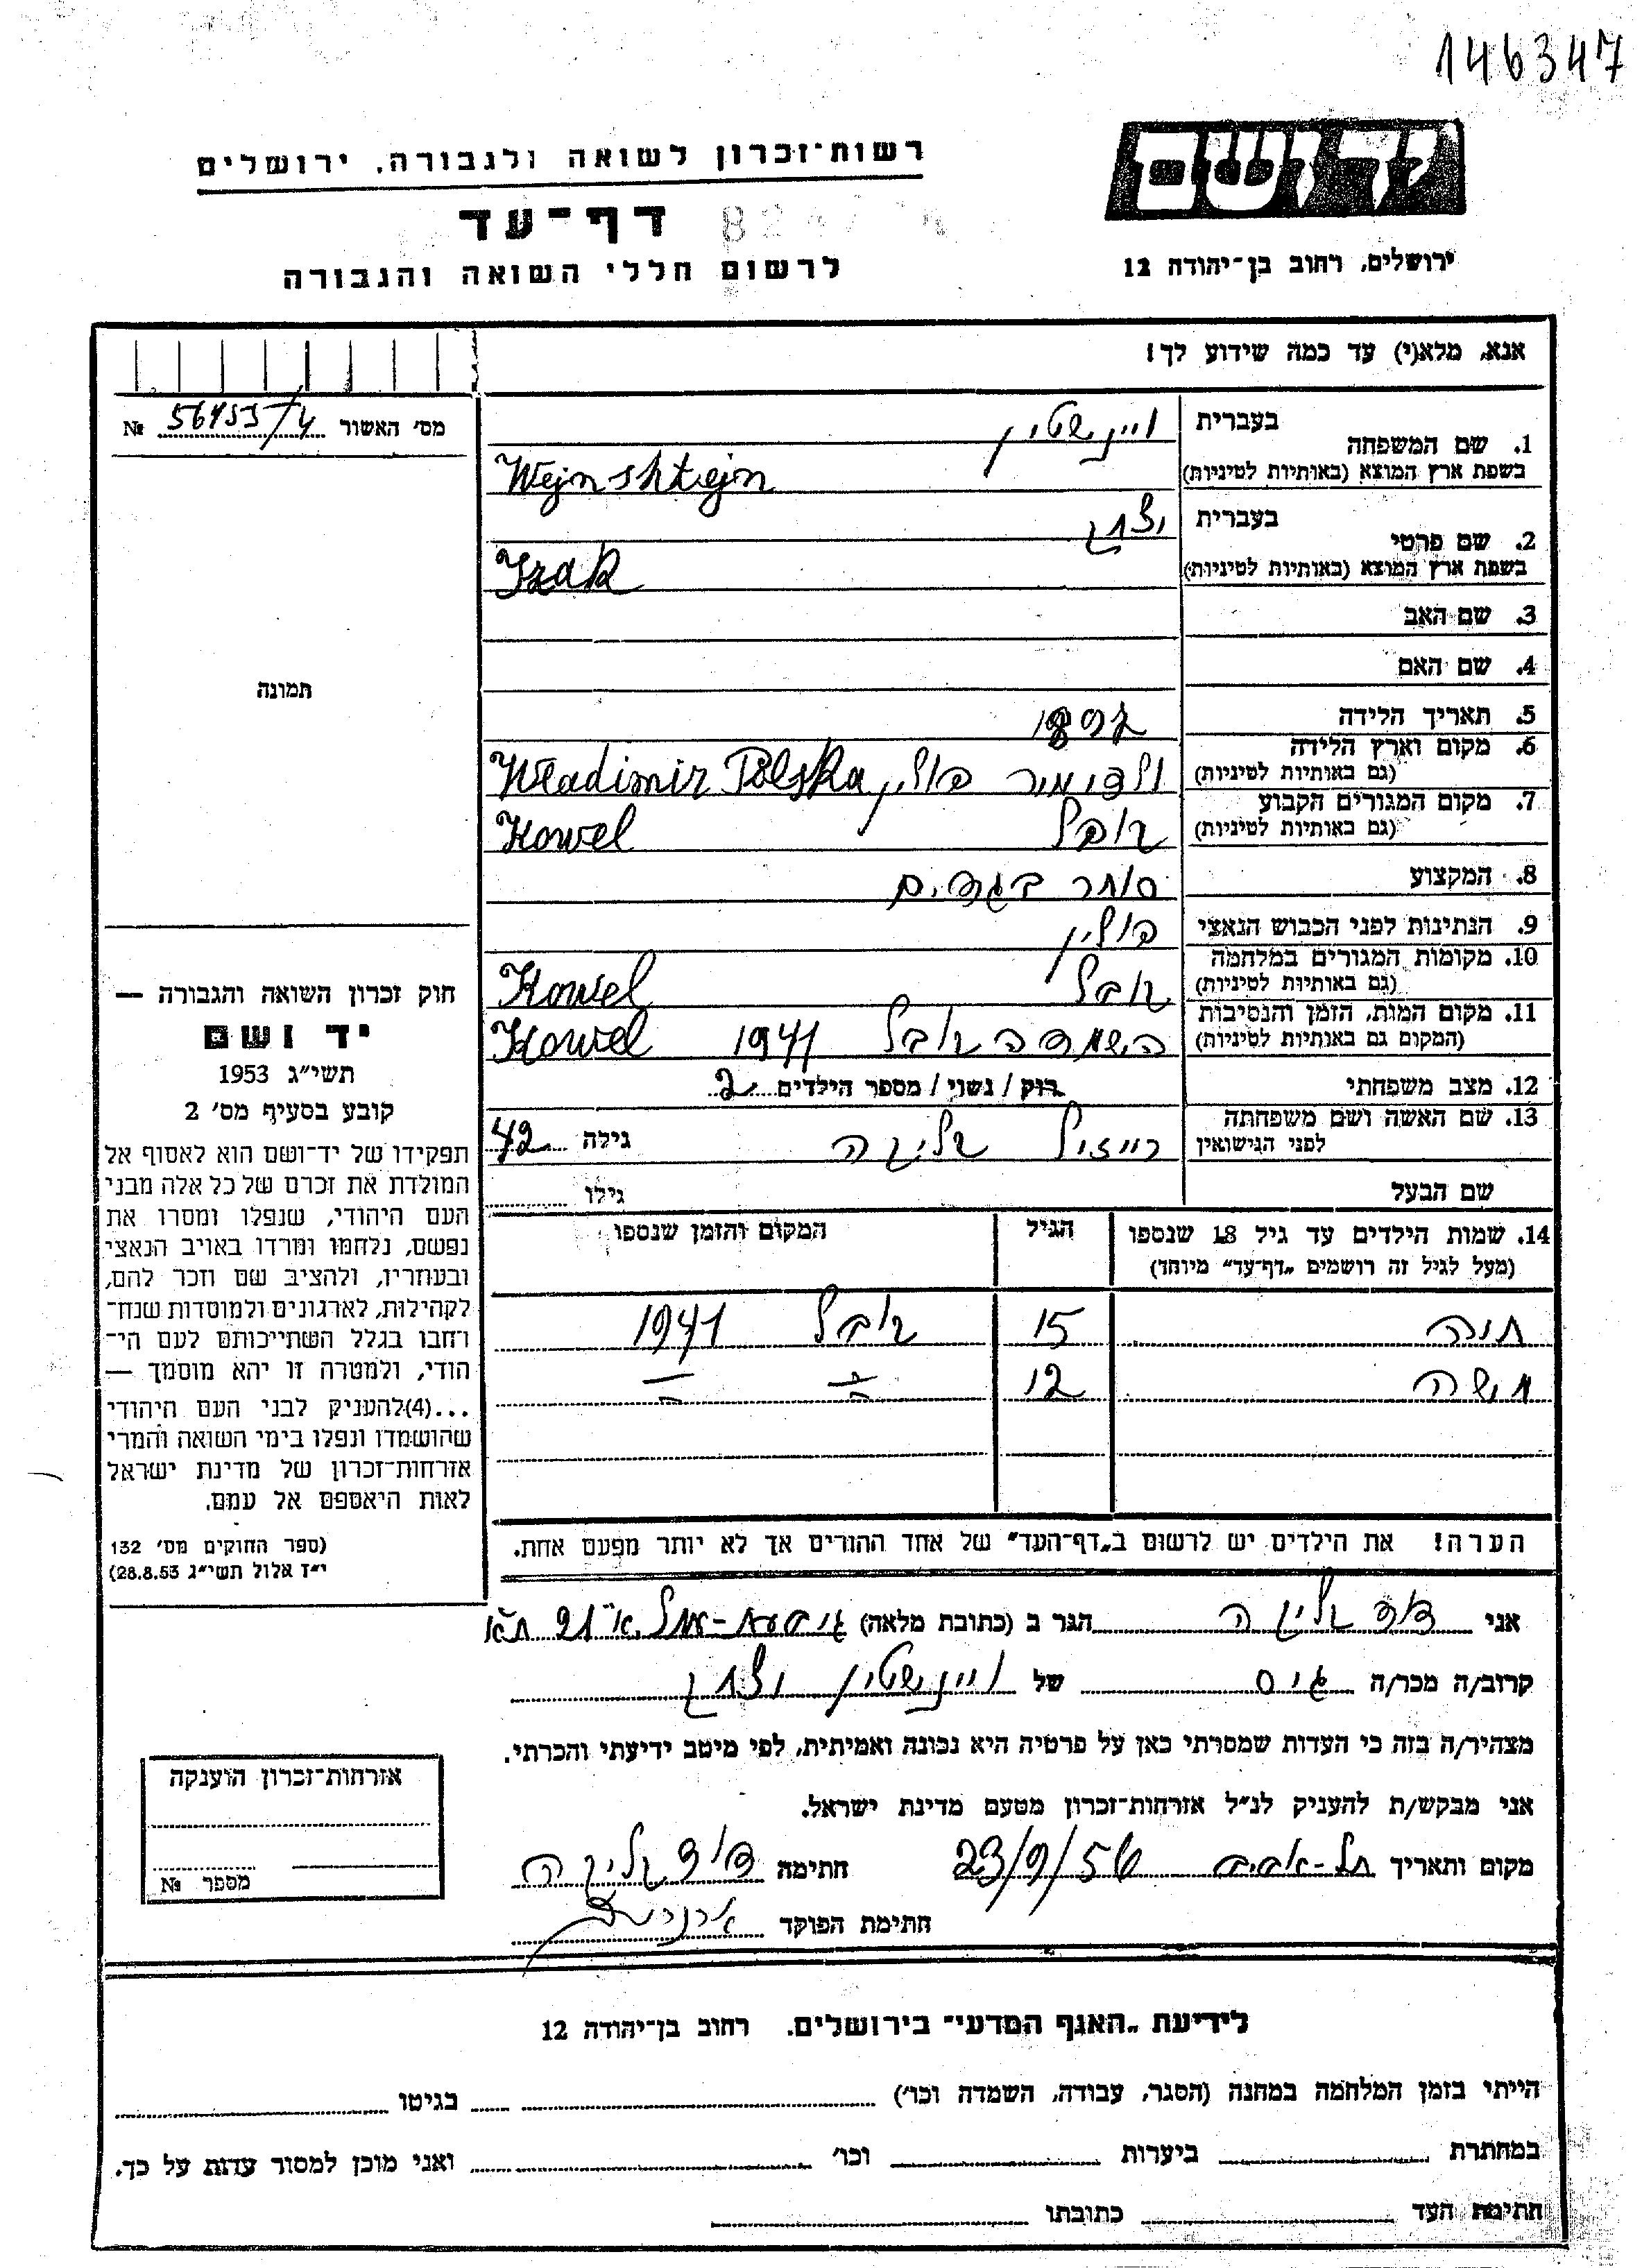 146347
יד ושם
רשות־זכרון לשואה ולגבורה, ירושלים
דף־עד
לרשום חללי השואה והגבורה
ירושלים, רחוב בן־יהודה 12
אנא, מלא(י) עד כמה שידוע לך!
מס׳ האשור 56453/4 №
1. שם המשפחה בעברית ויינשטין
בשפת ארץ המוצא (באותיות לטיניות) Wejnshtejn
2. שם פרטי בעברית יצחק
בשפת ארץ המוצא (באותיות לטיניות) Izak
3. שם האב
4. שם האם
5. תאריך הלידה 1897
6. מקום וארץ הלידה
(גם באותיות לטיניות) ולדימיר פולין, Władimir Polska
7. מקום המגורים הקבוע
(גם באותיות לטיניות) קובל Kowel
8. המקצוע סוחר בגדים
9. הנתינות לפני הכבוש הנאצי פולין
10. מקומות המגורים במלחמה
(גם באותיות לטיניות) קובל Kowel
11. מקום המות, הזמן והנסיבות
(המקום גם באותיות לטיניות) השמדה קובל 1941 Kowel
12. מצב משפחתי רוק / נשוי / מספר הילדים 2
13. שם האשה ושם משפחתה
לפני הנישואין רייזיל קליגה גילה 42
שם הבעל גילו
14. שמות הילדים עד גיל 18 שנספו הגיל המקום והזמן שנספו
(מעל לגיל זה רושמים „דף־עד״ מיוחד)
חנה 15 קובל 1941
משה 12 ״ ״
הערה! את הילדים יש לרשום ב„דף־העד״ של אחד ההורים אך לא יותר מפעם אחת.
תמונה
חוק זכרון השואה והגבורה —
יד ושם
תשי״ג 1953
קובע בסעיף מס׳ 2
תפקידו של יד־ושם הוא לאסוף אל
המולדת את זכרם של כל אלה מבני
העם היהודי, שנפלו ומסרו את
נפשם, נלחמו ומרדו באויב הנאצי
ובעוזריו, ולהציב שם וזכר להם,
לקהילות, לארגונים ולמוסדות שנח־
רחבו בגלל השתייכותם לעם הי־
הודי, ולמטרה זו יהא מוסמך —
...(4)להעניק לבני העם היהודי
שהושמדו ונפלו בימי השואה והמרי
אזרחות־זכרון של מדינת ישראל
לאות היאספם אל עמם.
(ספר החוקים מס׳ 132
י״ז אלול תשי״ג 28.8.53)
אני דוד קליגה הגר ב (כתובת מלאה) 21 ת״א
קרוב/ה מכר/ה גיס של ויינשטין יצחק
מצהיר/ה בזה כי העדות שמסרתי כאן על פרטיה היא נכונה ואמיתית, לפי מיטב ידיעתי והכרתי.
אני מבקש/ת להעניק לנ״ל אזרחות־זכרון מטעם מדינת ישראל.
מקום ותאריך תל-אביב 23/9/56 חתימה דוד קליגה
חתימת הפוקד
אזרחות־זכרון הוענקה
מספר №
לידיעת „האגף המדעי״ בירושלים. רחוב בן־יהודה 12
הייתי בזמן המלחמה במחנה (הסגר, עבודה, השמדה וכו׳) בגיטו
במחתרת ביערות וכו׳ ואני מוכן למסור עדות על כך.
חתימת העד כתובתו